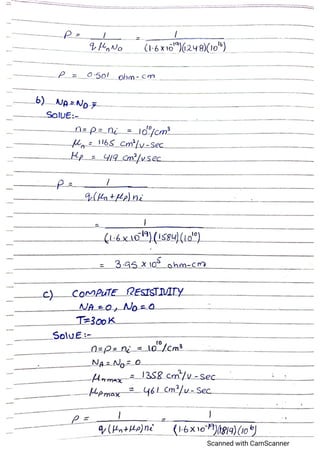 ρ = 1 / q μn No = 1 / (1.6 x 10^-19)(1248)(10^16)
ρ = 0.501 ohm-cm
b) NA = ND
Solue:-
n = p = ni = 10^10/cm³
μn = 1165 cm²/v-sec
μp = 419 cm²/vsec
ρ = 1 / q(μn + μp) ni
= 1 / (1.6 x 10^-19)(1584)(10^10)
= 3.95 x 10^5 ohm-cm
c) COMPUTE RESISTIVITY
NA = 0, ND = 0
T = 300K
Solue :-
n = p = ni = 10^10/cm³
NA = ND = 0
μnmax = 1358 cm²/v-sec
μpmax = 461 cm²/v-sec
ρ = 1 / q(μn + μp) ni = 1 / (1.6 x 10^-19)(1819)(10^10)
Scanned with CamScanner